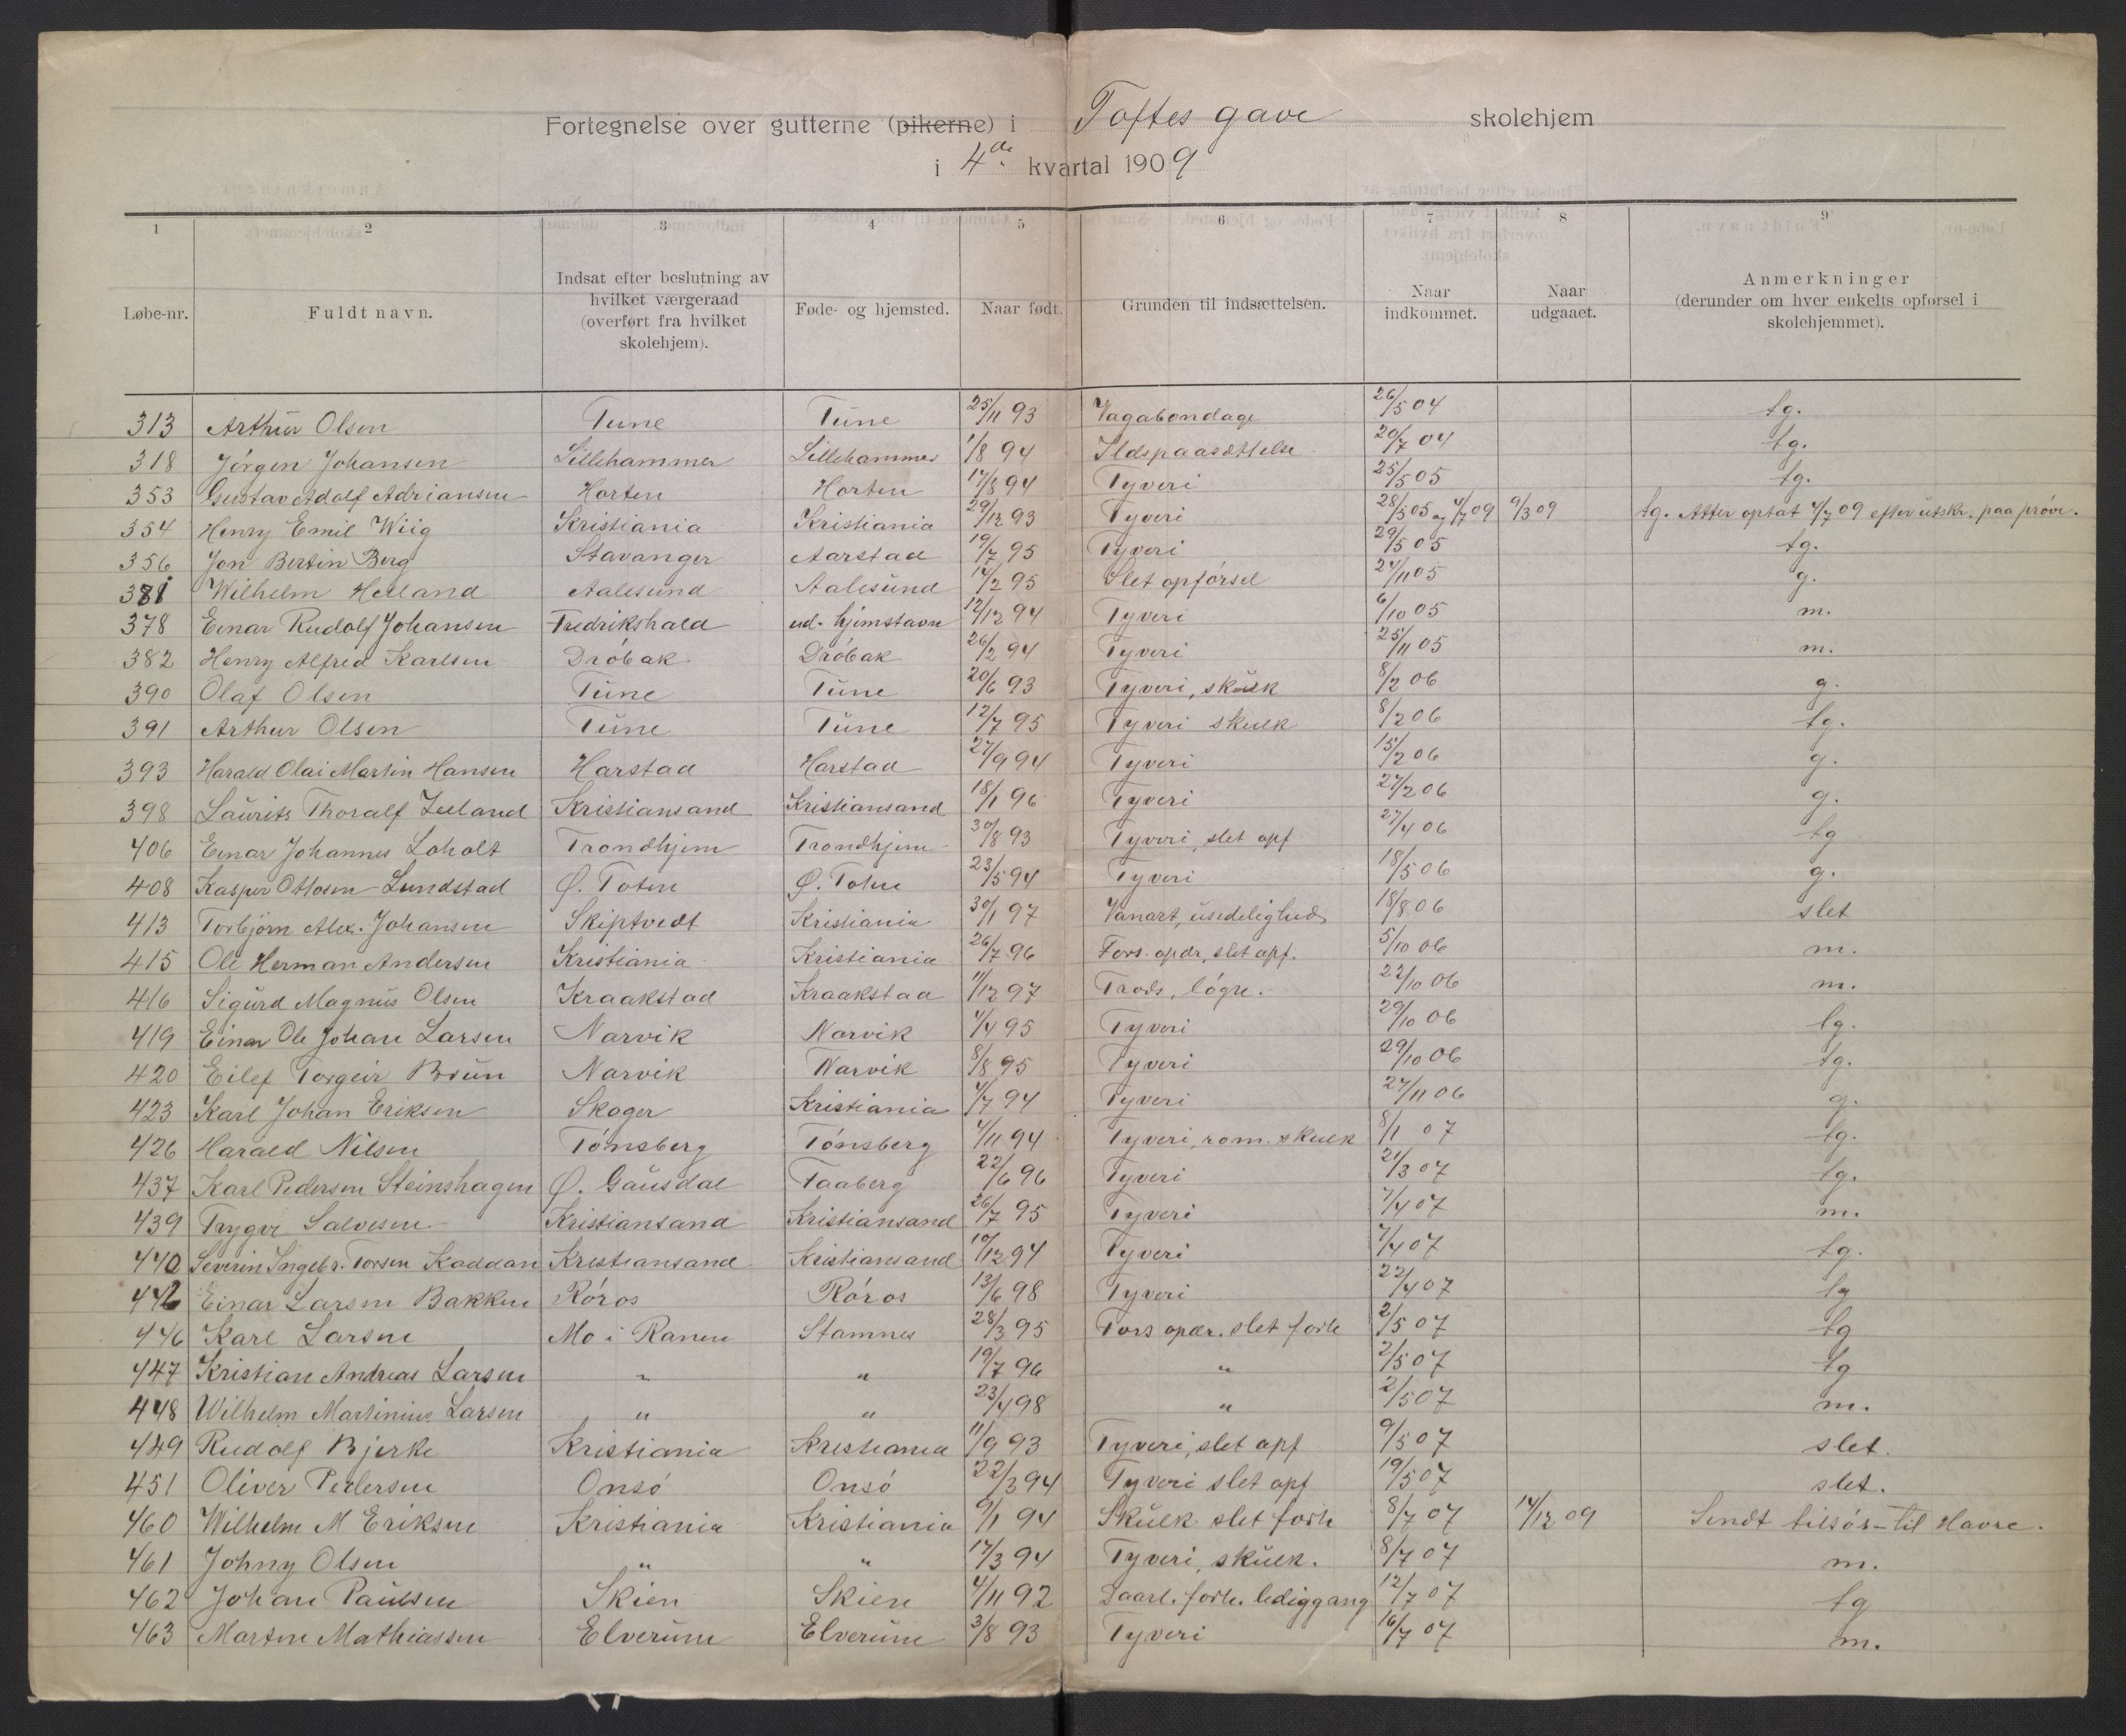 Fortegnelse over gutterne (pikerne) i Toftes gave skolehjem
i 4de kvartal 1909
1 2 3 4 5 6 7 8 9
Løbe-nr. | Fuldt navn. | Indsat efter beslutning av hvilket værgeraad (overført fra hvilket skolehjem). | Føde- og hjemsted. | Naar født. | Grunden til indsættelsen. | Naar indkommet. | Naar udgaaet. | Anmerkninger (derunder om hver enkelts opførsel i skolehjemmet).
313 Arthur Olsen Tune Tune 25/11 93 Vagabondage 26/5 04 tg.
318 Jörgen Johansen Lillehammer Lillehammer 1/8 94 Ildspaasættelse 20/7 04 tg.
353 Gustav Adolf Adriansen Horten Horten 17/8 94 Tyveri 25/5 05 tg.
354 Henry Emil Wiig Kristiania Kristiania 29/12 93 Tyveri 28/5 05 og 4/7 09 9/3 09 tg. Atter optat 4/7 09 efter utskr. paa prøve.
356 Jon Bertin Berg Stavanger Aarstad 19/7 95 Tyveri 29/5 05 tg.
381 Wilhelm Helland Aalesund Aalesund 14/2 95 Slet opförsel 24/11 05 g.
378 Einar Rudolf Johansen Fredrikshald ud. hjemstavn 12/12 94 Tyveri 6/10 05 m.
382 Henry Alfred Karlsen Dröbak Dröbak 26/2 94 Tyveri 25/11 05 m.
390 Olaf Olsen Tune Tune 20/6 93 Tyveri, skulk 8/2 06 g.
391 Arthur Olsen Tune Tune 12/7 95 Tyveri skulk 8/2 06 tg.
393 Harald Olai Martin Hansen Harstad Harstad 27/9 94 Tyveri 15/2 06 g.
398 Laurits Thoralf Iseland Kristiansand Kristiansand 18/1 96 Tyveri 27/2 06 g.
406 Einar Johannes Loholt Trondhjem Trondhjem 30/8 93 Tyveri, slet opf 27/4 06 tg
408 Kasper Ottosen Lundstad Ø. Toten Ø. Toten 23/5 94 Tyveri 18/5 06 g.
413 Torbjörn Alex. Johansen Skiptvedt Kristiania 30/1 97 Vanart, usedelighed 18/8 06 slet
415 Ole Herman Andersen Kristiania Kristiania 26/7 96 Fors. opdr, slet opf. 5/10 06 m.
416 Sigurd Magnus Olsen Kraakstad Kraakstad 11/12 97 Trods, lögn. 22/10 06 m.
419 Einar Ole Johan Larsen Narvik Narvik 4/4 95 Tyveri 29/10 06 tg.
420 Eilef Torgeir Brun Narvik Narvik 8/8 95 Tyveri 29/10 06 tg.
423 Karl Johan Eriksen Skoger Kristiania 4/7 94 Tyveri 27/11 06 g.
426 Harald Nilsen Tönsberg Tönsberg 4/11 94 Tyveri, rom. skulk 8/1 07 tg.
437 Karl Pedersen Steinshagen Ø. Gausdal Faaberg 22/6 96 Tyveri 21/3 07 tg.
439 Trygve Salvesen Kristiansand Kristiansand 26/7 95 Tyveri 7/4 07 m.
440 Severin Ingebr. Torsen Kaddan Kristiansand Kristiansand 10/12 94 Tyveri 7/4 07 tg.
442 Einar Larsen Bakken Röros Röros 13/6 98 Tyveri 22/4 07 tg
446 Karl Larsen Mo i Ranen Stamnes 28/3 95 Fors opdr. slet forh 2/5 07 tg
447 Kristian Andreas Larsen " " 19/7 96 " 2/5 07 tg
448 Wilhelm Martinius Larsen " " 23/4 98 " 2/5 07 m.
449 Rudolf Bjerke Kristiania Kristiania 11/9 93 Tyveri, slet opf 9/5 07 slet.
451 Oliver Pedersen Onsö Onsö 22/3 94 Tyveri slet opf 19/5 07 slet.
460 Wilhelm M Eriksen Kristiania Kristiania 9/1 94 Skulk slet forh 8/7 07 14/12 09 Sendt tilsös - til Havre.
461 Johny Olsen " " 17/3 94 Tyveri, skulk. 8/7 07 m.
462 Johan Paulsen Skien Skien 4/11 92 Daarl. forh. lediggang 12/7 07 tg
463 Marten Mathiassen Elverum Elverum 3/8 93 Tyveri 16/7 07 m.